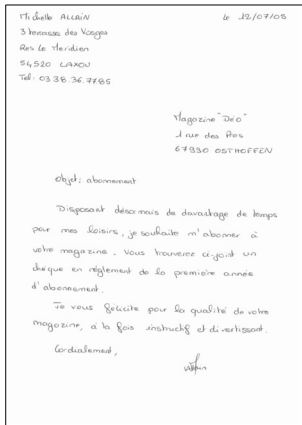 Michelle ALLAIN
le 12/07/05
3 terrasses des Vosges
Res Le Meridien
54520 LAXOU
Tel: 03.38.36.7785
Magazine "Déo"
1 rue des Pres
67990 OSTHOFFEN
objet: abonnement
Disposant désormais de davantage de temps
pour mes loisirs, je souhaite m'abonner à
votre magazine. Vous trouverez ci-joint un
chèque en règlement de la première année
d'abonnement.
Je vous félicite pour la qualité de votre
magazine, à la fois instructif et divertissant.
Cordialement,